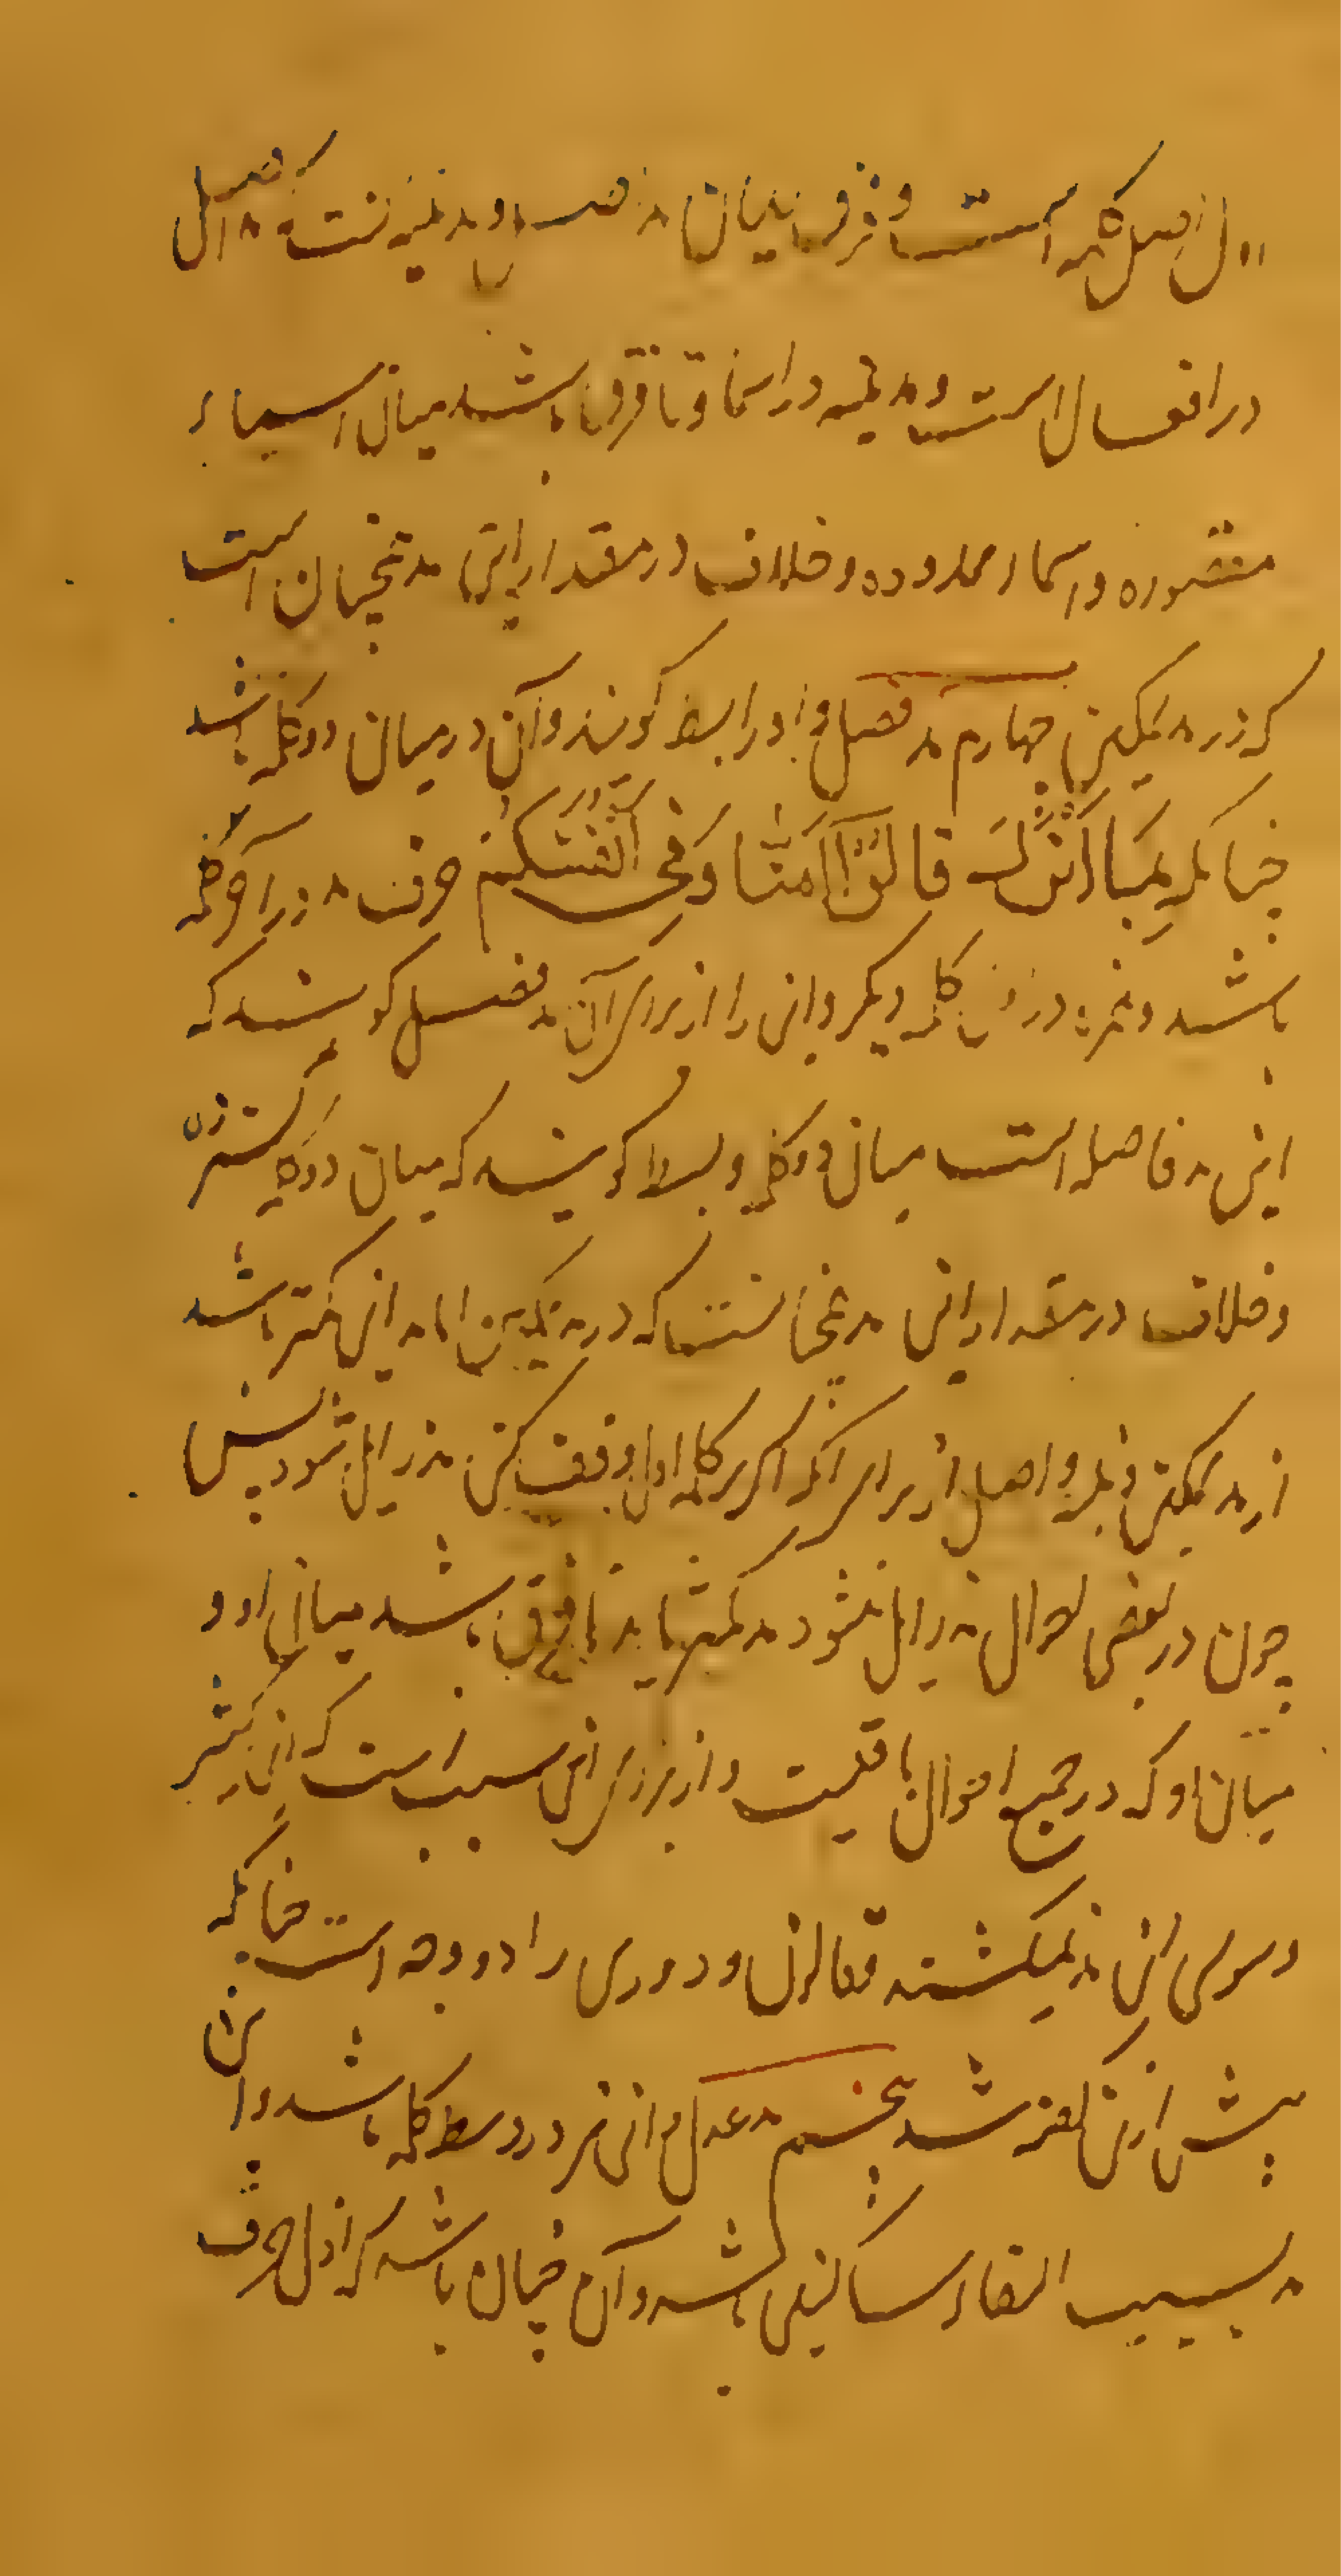 اول از اصل کلمه است و فرق میان مد اصل و مد بنیه آنست که مد اصل
در افعال است و مد بنیه در اسما و تا فرق باشد میان اسماء
مقصوره و اسماء ممدوده و خلاف در مقدار این مد همچنان است
که در مد تمکین چهارم مد فصل و او را بسط گویند و آن در میان دو کلمه باشد
چنانکه بِمَا اُنْزِلَ قَالُوْا اٰمَنَّا وَفِیْ اَنْفُسِکُمْ حرف مد در آخر کلمه
باشد و همزه در اول کلمه دیگر و این را از برای آن مد فصل گویند که
این مد فاصله است میان دو کلمه و بسط گویند که میان دو کلمه گسترد
و خلاف در مقدار این مد همچنانست که در مد تمکین اما مد این کمتر باشد
از مد تمکین و بنیه و اصل از برای آنکه اگر بر کلمه اول وقف کنی مد زایل شود پس
چون در بعضی احوال مد زایل میشود مد کمتر باید تا فرق باشد میان او و
میان او که در جمیع احوال باقیست و از برای این سبب است که ابن کثیر
و سوسی این مد نمیکشند و قالون و دوری را دو وجه است چنانکه
پیش ازین گفته شد پنجم مد عدل و این نیز در وسط کلمه باشد و این
مد بسبب التقاء ساکنین باشد و آن چنان باشد که اول حرف